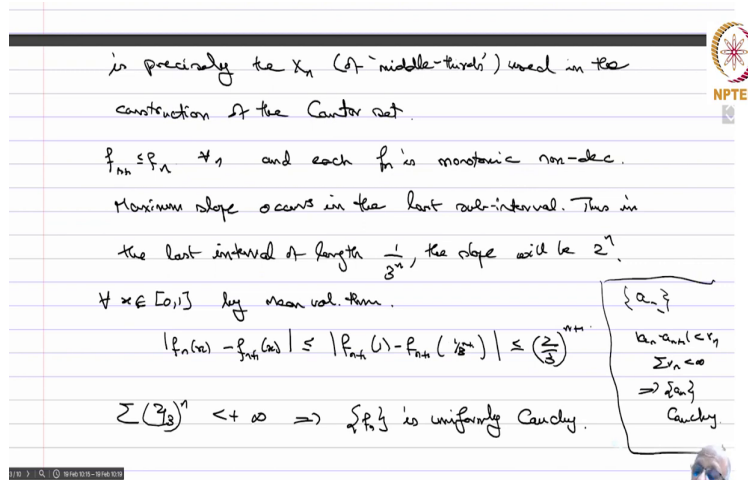 is precisely the Xₙ (of "middle-thirds") used in the
construction of the Cantor set.
fₙ₊₁ ≤ fₙ ∀n and each fₙ is monotonic non-dec.
Maximum slope occurs in the last sub-interval. Thus in
the last interval of length 1/3ⁿ, the slope will be 2ⁿ.
∀ x ∈ [0,1] by mean val. thm.
|fₙ(x) - fₙ₊₁(x)| ≤ |fₙ₊₁(1) - fₙ₊₁( )| ≤ (2/3)ⁿ⁺¹
Σ(2/3)ⁿ <+ ∞ ⇒ {fₙ} is uniformly Cauchy.
{aₙ}
|aₙ-aₙ₊₁| < rₙ
Σrₙ < ∞
⇒ {aₙ}
Cauchy.
NPTE
19 Feb 10:15 - 19 Feb 10:19